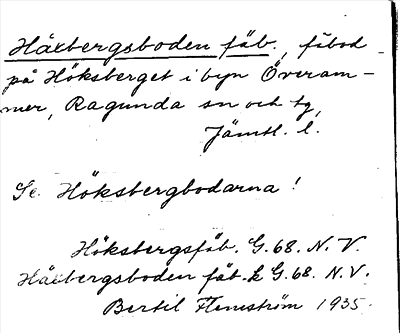 Håxbergsboden fäb., fäbod
på Höksberget i byn Överam-
mer, Ragunda sn och tg,
Jämtl. l.
Se Höksbergbodarna!
Höksbergsfäb. G. 68. N. V.
Håxbergsboden fäb. k G. 68. N. V.
Bertil Flemström 1935.